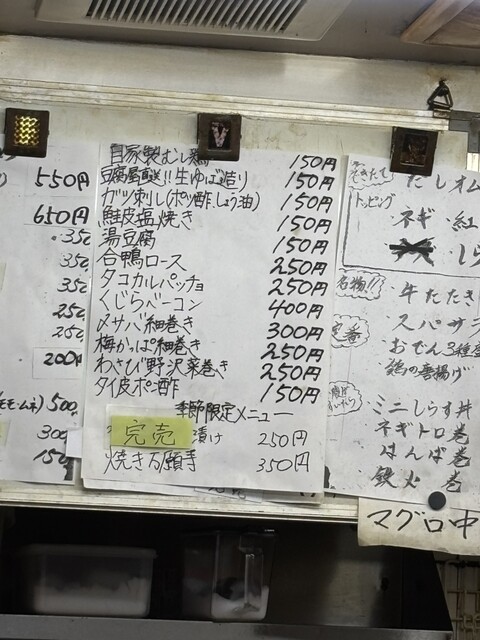 550円
650円
350
350
350
250
250
200円
(モモ・ムネ) 500
300
150
自家製むし鶏 150円
豆腐屋直送!!生ゆば造り 150円
ガツ刺し(ポン酢、しょう油) 150円
鮭皮塩焼き 150円
湯豆腐 150円
合鴨ロース 250円
タコカルパッチョ 250円
くじらベーコン 400円
〆サバ細巻き 300円
梅かっぱ細巻き 250円
わさび野沢菜巻き 250円
タイ皮ポン酢 150円
季節限定メニュー
完売 漬け 250円
焼き万願寺 350円
だしオム
トッピング
ネギ・紅
しら
名物!!
・牛たたき
・スパサラ
定番
・おでん3種盛
・鶏の唐揚げ
・ミニしらす丼
・ネギトロ巻
・はんば巻
・鉄火巻
マグロ中